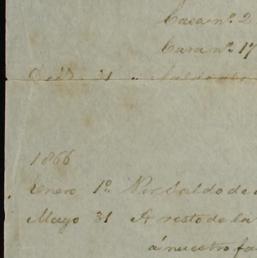 Casa nº. 2
Casa nº. 17
31 "
1866
Enero 1º Por saldo de
Mayo 31 A resto de la
á nuestro fa